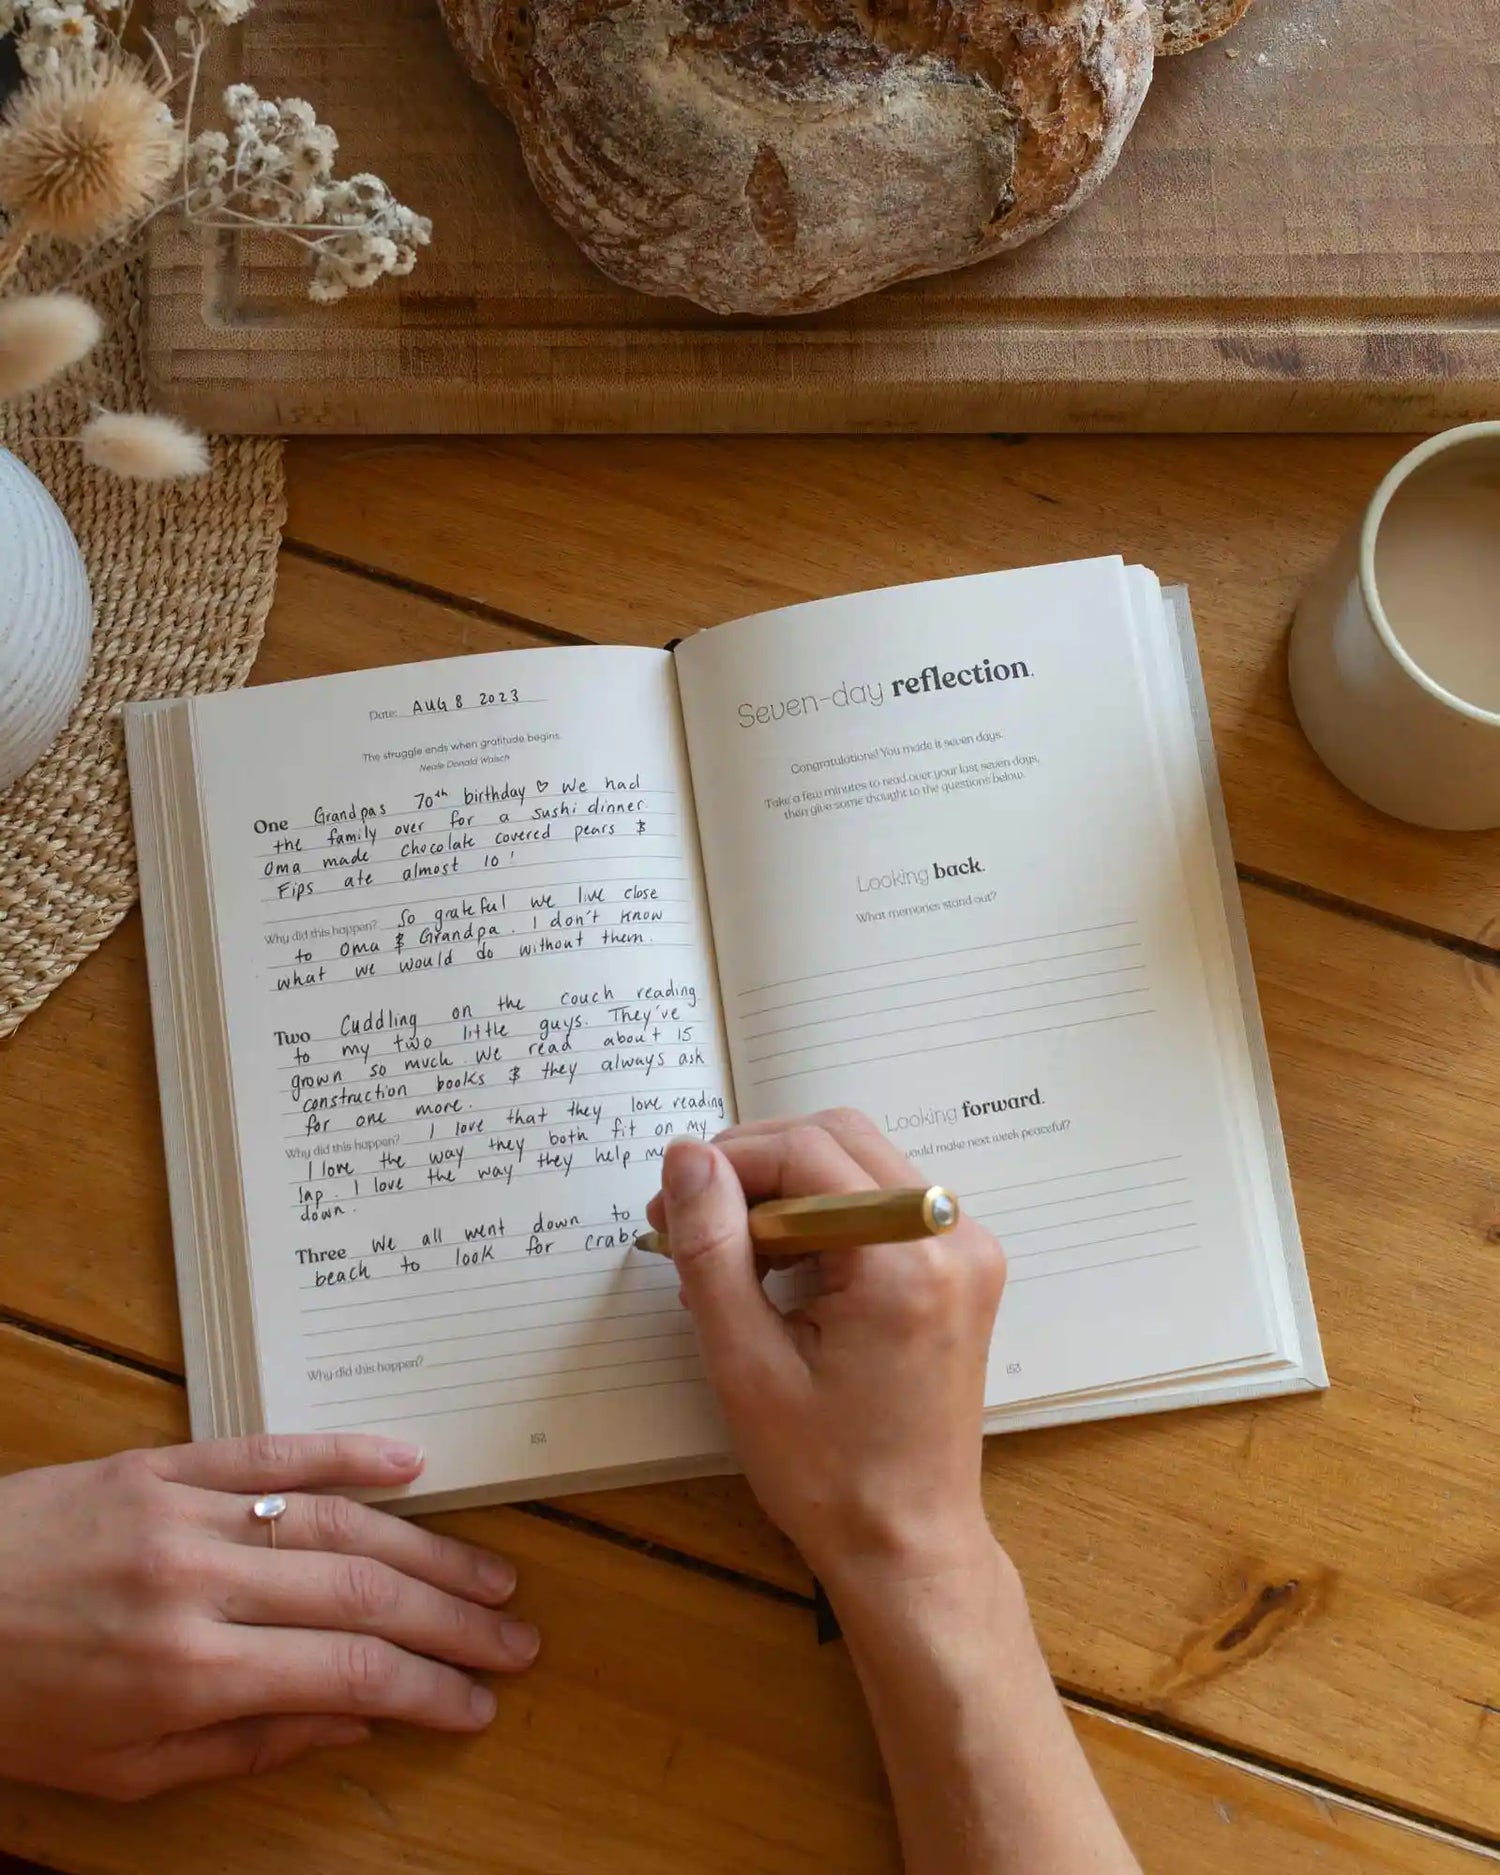 Date: AUG 8 2023
The struggle ends when gratitude begins.
Neale Donald Walsch
One Grandpas 70th birthday ♡ We had
the family over for a sushi dinner.
Oma made chocolate covered pears &
Fips ate almost 10!
Why did this happen? So grateful we live close
to Oma & Grandpa. I don't know
what we would do without them.
Two Cuddling on the couch reading
to my two little guys. They've
grown so much. We read about 15
construction books & they always ask
for one more.
Why did this happen? I love that they love reading
I love the way they both fit on my
lap. I love the way they help me
down.
Three We all went down to
beach to look for crabs
Why did this happen?
152
Seven-day reflection.
Congratulations! You made it seven days.
Take a few minutes to read over your last seven days,
then give some thought to the questions below.
Looking back.
What memories stand out?
Looking forward.
would make next week peaceful?
153